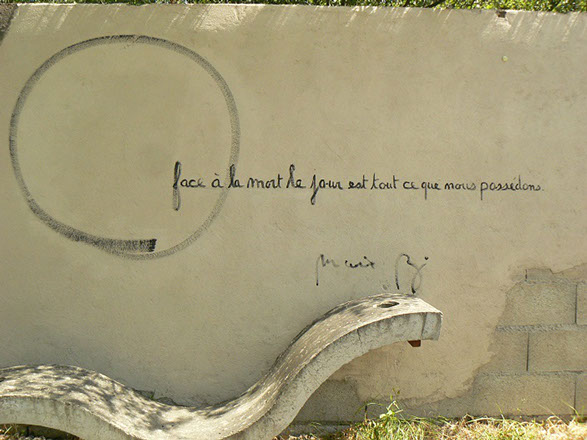 face à la mort le jour est tout ce que nous possédons.